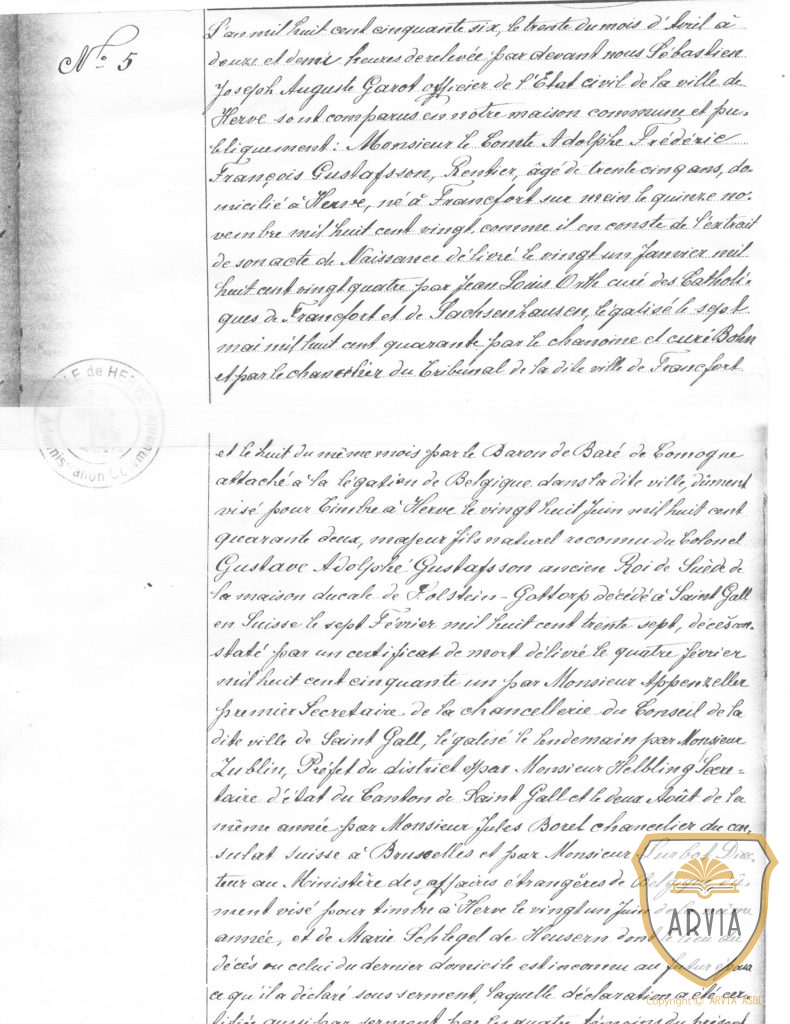 N° 5
L'an mil huit cent cinquante six, le trente du mois d'Avril à
douze et demi heures de relevée par devant nous Sébastien
Joseph Auguste Garot officier de l'Etat civil de la ville de
Herve sont comparus en notre maison commune et pu-
bliquement: Monsieur le Comte Adolphe Frédéric
François Gustafsson, Rentier, âgé de trente cinq ans, do-
micilié à Herve, né à Francfort sur mein le quinze no-
vembre mil huit cent vingt, comme il en conste de l'extrait
de son acte de Naissance délivré le vingt un Janvier mil
huit cent vingt quatre par Jean Louis Orth curé des Catholi-
ques de Francfort et de Sachsenhausen, légalisé le sept
mai mil huit cent quarante par le chanoine et curé Bohn
et par le chancelier du Tribunal de la dite ville de Francfort
VILLE de HERVE
Administration Communale
et le huit du même mois par le Baron de Baré de Comogne
attaché à la légation de Belgique dans la dite ville, dûment
visé pour timbre à Herve le vingt huit Juin mil huit cent
quarante deux, majeur fils naturel reconnu du Colonel
Gustave Adolphe Gustafsson ancien Roi de Suède de
la maison ducale de Holstein-Gottorp décédé à Saint Gall
en Suisse le sept Février mil huit cent trente sept, décès con-
staté par un certificat de mort délivré le quatre février
mil huit cent cinquante un par Monsieur Appenzeller
premier Secretaire de la chancellerie du Conseil de la
dite ville de Saint Gall, légalisé le lendemain par Monsieur
Zublin, Préfet du district et par Monsieur Helbling Secre-
taire d'état du Canton de Saint Gall et le deux Août de la
même année par Monsieur Jules Borel chancelier du con-
sulat suisse à Bruxelles et par Monsieur Direc-
teur au Ministère des affaires étrangères de Belgique dû-
ment visé pour timbre à Herve le vingt un Juin de la même
année, et de Marie Schlegel de Heusern dont le lieu du
décès ou celui du dernier domicile est inconnu au futur époux
ce qu'il a déclaré sous serment, laquelle déclaration a été cer-
tifiée aussi par serment par les quatre témoins du présent
ARVIA
Copyright © ARVIA ASBL